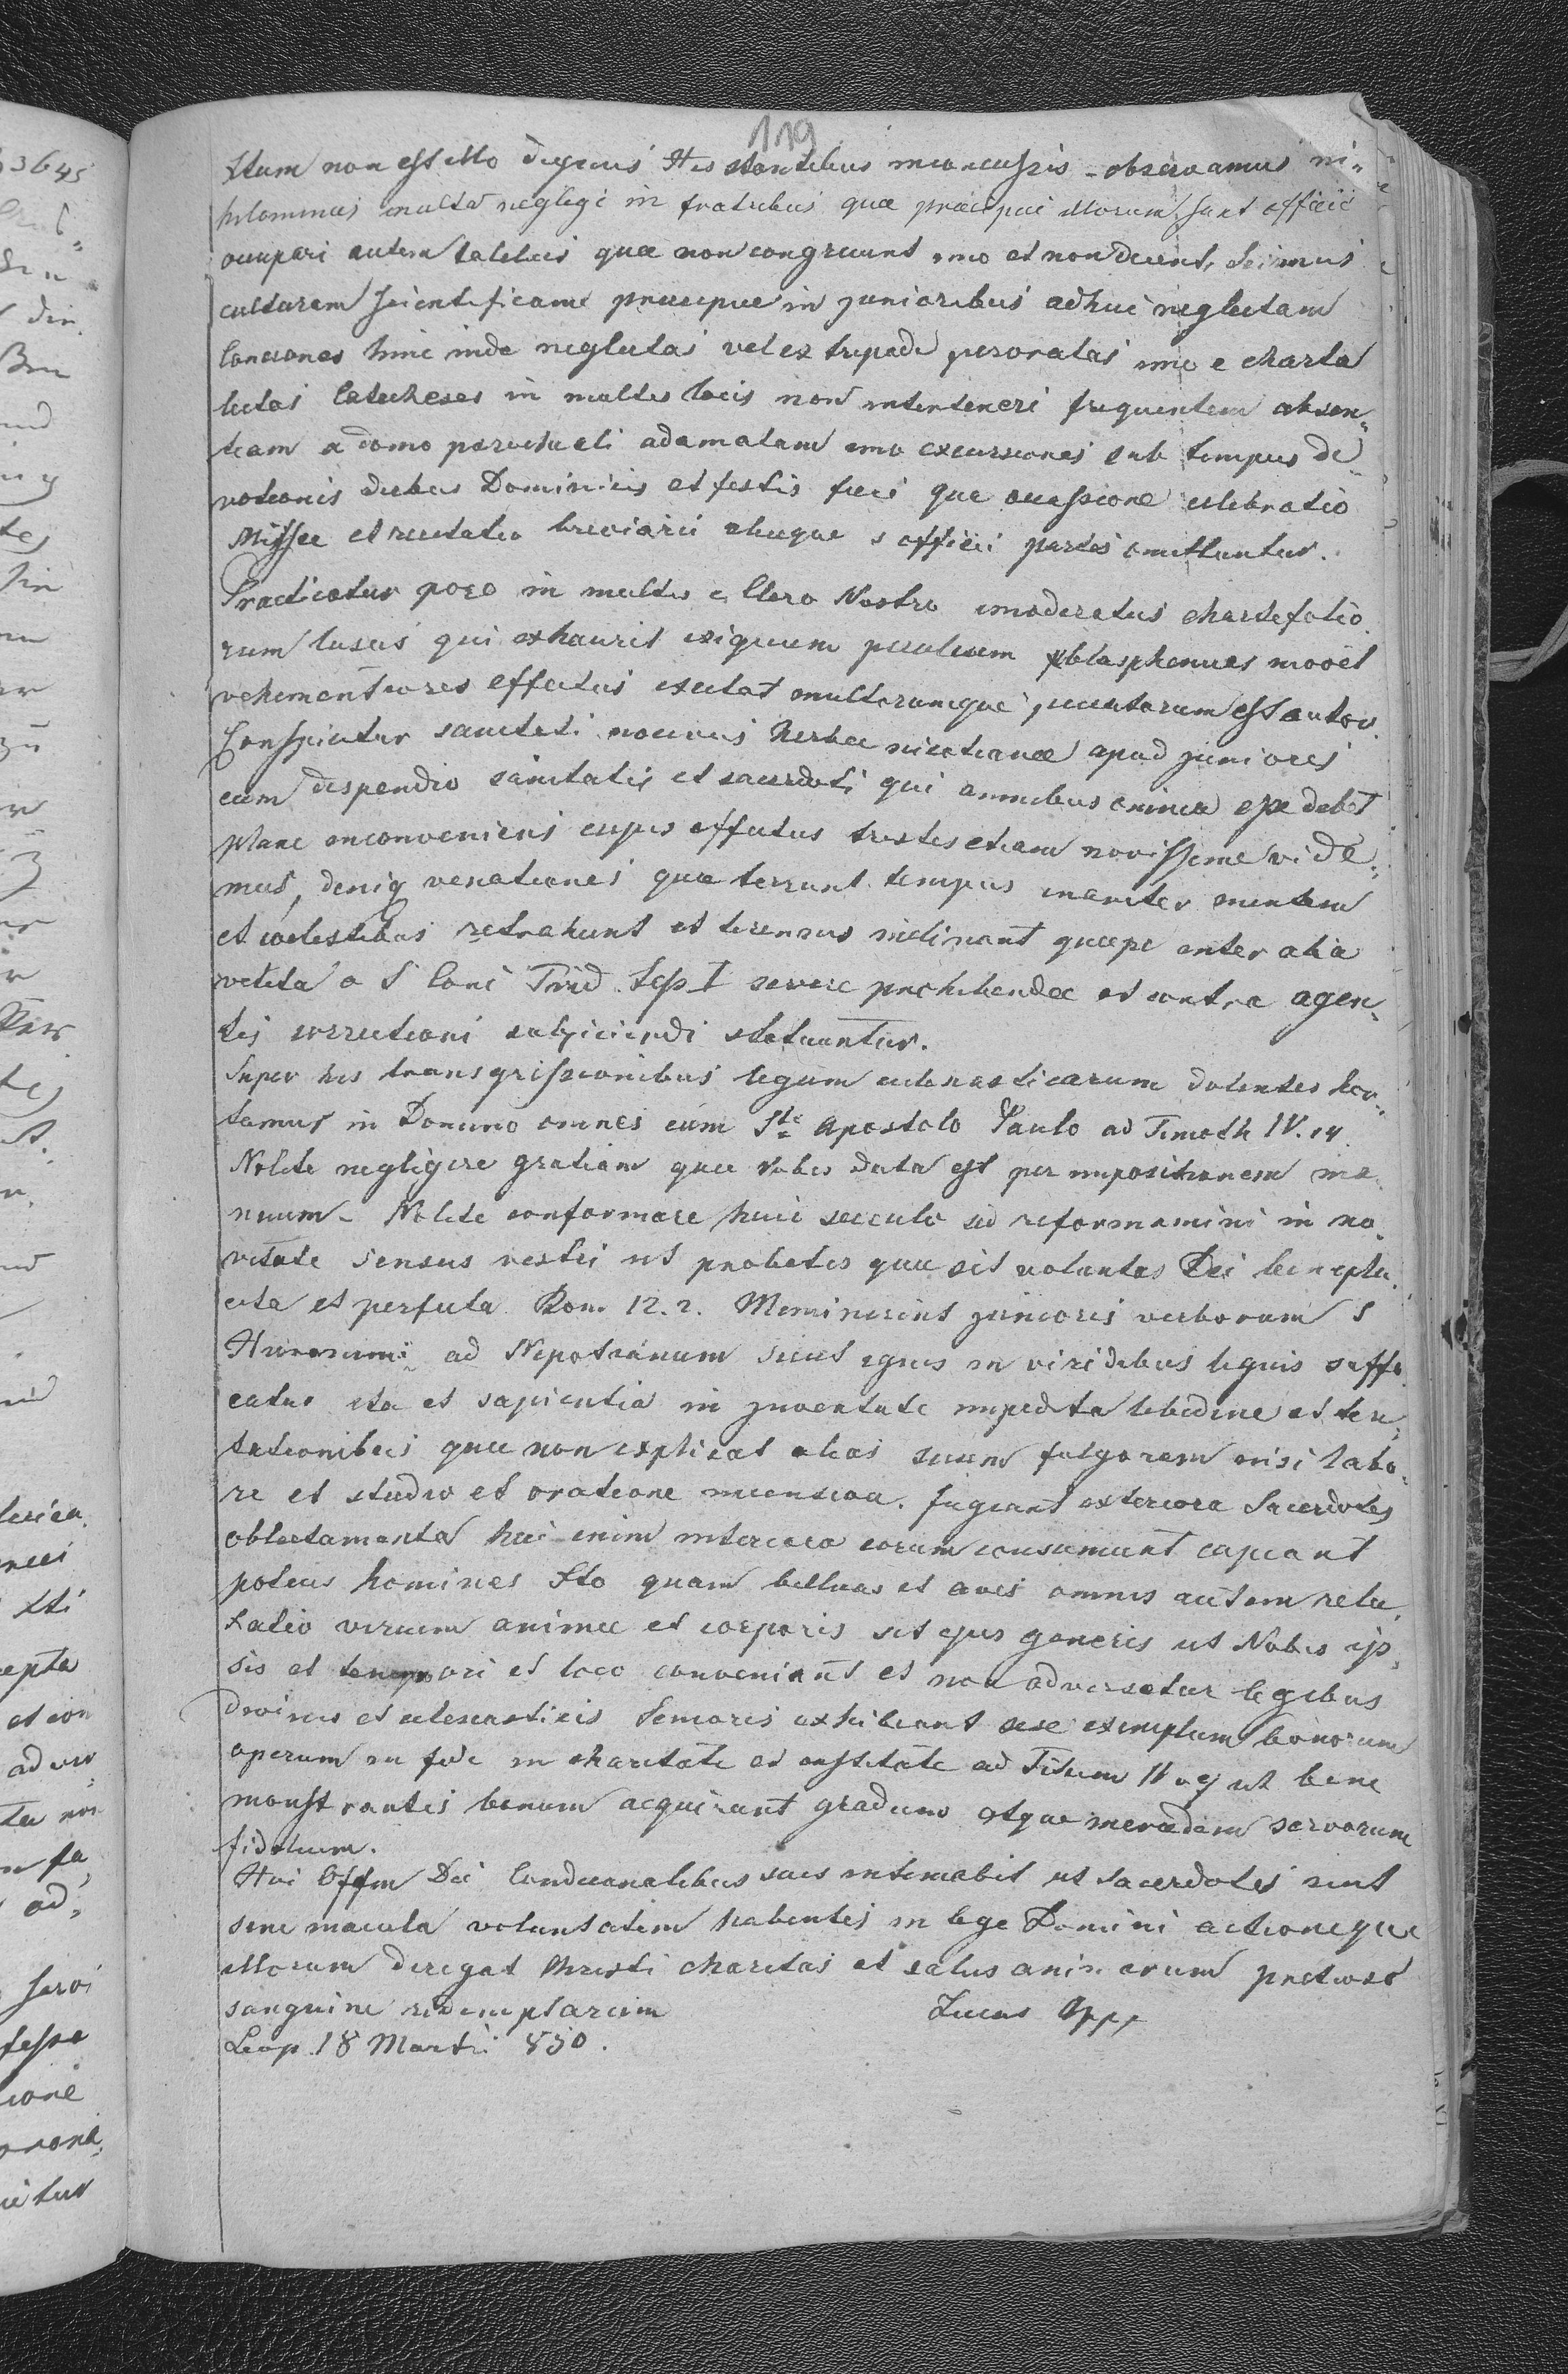 119
Xtum non est illo dignus His stantibus inconcussis - observamus ni-
hilominus multa neglegi in fratribus quæ præcipui illorum sunt officii
occupari autem talibus quæ non congruunt imo et non decent, Scimus
culturam scientificam præcipue in junioribus adhuc neglectam
Conciones hinc inde neglectas vel ex tripode peroratas imo e charta
lectas Catecheses in multis locis non interteneri frequentem absen-
tiam a domo parochiali adamatam imo excursiones sub tempus de
votionis diebus Dominicis et festis fieri qua occassione celebratio
Missæ et recitatio breviarii aliæque s officii partes omittuntur.
Practicatur poro in multis e Clero Nostro imoderatus chartifolio
rum lusus qui exhaurit exiguum peculium blasphemias movet
vehementiores effectus excitat multorumque peccatorum est autor
Conspicitur sanitati nocivus herbæ nicotianæ apud juniores
cum dispendio sanitatis et sacerdoti qui omnibus omnia esse debet
plane inconveniens cujus effectus tristes etiam novissime vide-
mus, deniq venationes quæ terrunt tempus inaniter mentem
et cœlestibus retrahunt et terrenis inclinant quæpe inter alia
vetita a S Conc Trid. Sess severe prohibendæ et contra agen-
tes correctioni subjiciendi statuuntur.
Super his transgrissionibus legum eclesiasticarum dolentes hor-
tamur in Domino omnes cum Sto Apostolo Paulo ad Timoth IV. 14.
Nolite negligere gratiam quæ Vobis data est per impositionem ma
nuum - Nolite conformare huic seculo sed reformamini in no
vitate sensus vestri ut probetis quæ sit voluntas Dei benepla
cita et perfecta Rom. 12. 2. Meminerint juniores verborum S
Hieronimi ad Nepotianum sicut ignis in viridibus lignis suffo
catur ita et sapientia in juventute impedita libidine et ten
tationibus quæ non explicat alias suum fulgorem nisi labo-
re et studio et oratione incensa. fugiant exteriora Sacerdotes
oblectamenta hæc enim interiora eorum consumunt capiant
potius homines Xto quam belluas et aves omnis autem rela
xatio virium animæ et corporis sit ejus generis ut Nobis ip-
sis et tempori et loco conveniant et non adversetur legibus
divinis et eclesiasticis Seniores exhibeant sese exemplum bonorum
operum in fide in charitate et castitate ad Titum II ut bene
monstrantes bonum acquirant gradum atque mercedem servorum
fidelium.
Hoc Offm Dec Condecanalibus suis intimabit ut sacerdotes sint
sine macula voluntatem habentes in lege Domini actionesque
illorum dirigat Christi charitas et salus animarum pretioso
sanguine redemptarum
Lucas Appp
Leop. 18 Martii 850.